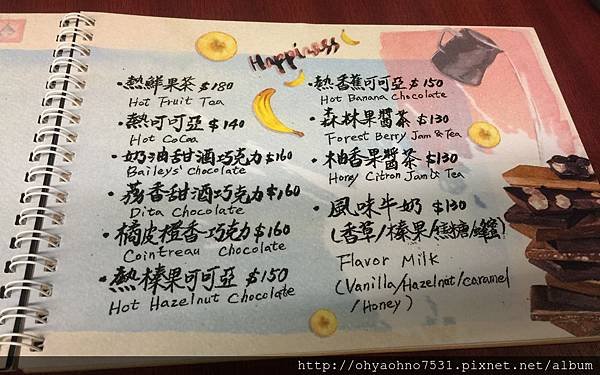 Happiness
•熱鮮果茶 $180
Hot Fruit Tea
•熱可可亞 $140
Hot CoCoa
•奶油甜酒巧克力 $160
Baileys' Chocolate
•荔香甜酒巧克力 $160
Dita Chocolate
•橘皮橙香巧克力 $160
Cointreau Chocolate
•熱榛果可可亞 $150
Hot Hazelnut Chocolate
•熱香蕉可可亞 $150
Hot Banana Chocolate
•森林果醬茶 $130
Forest Berry Jam & Tea
•柚香果醬茶 $130
Honey Citron Jam & Tea
•風味牛奶 $130
(香草/榛果/焦糖/蜂蜜)
Flavor Milk
(Vanilla/Hazelnut/caramel
/Honey)
http://ohyaohno7531.pixnet.net/album